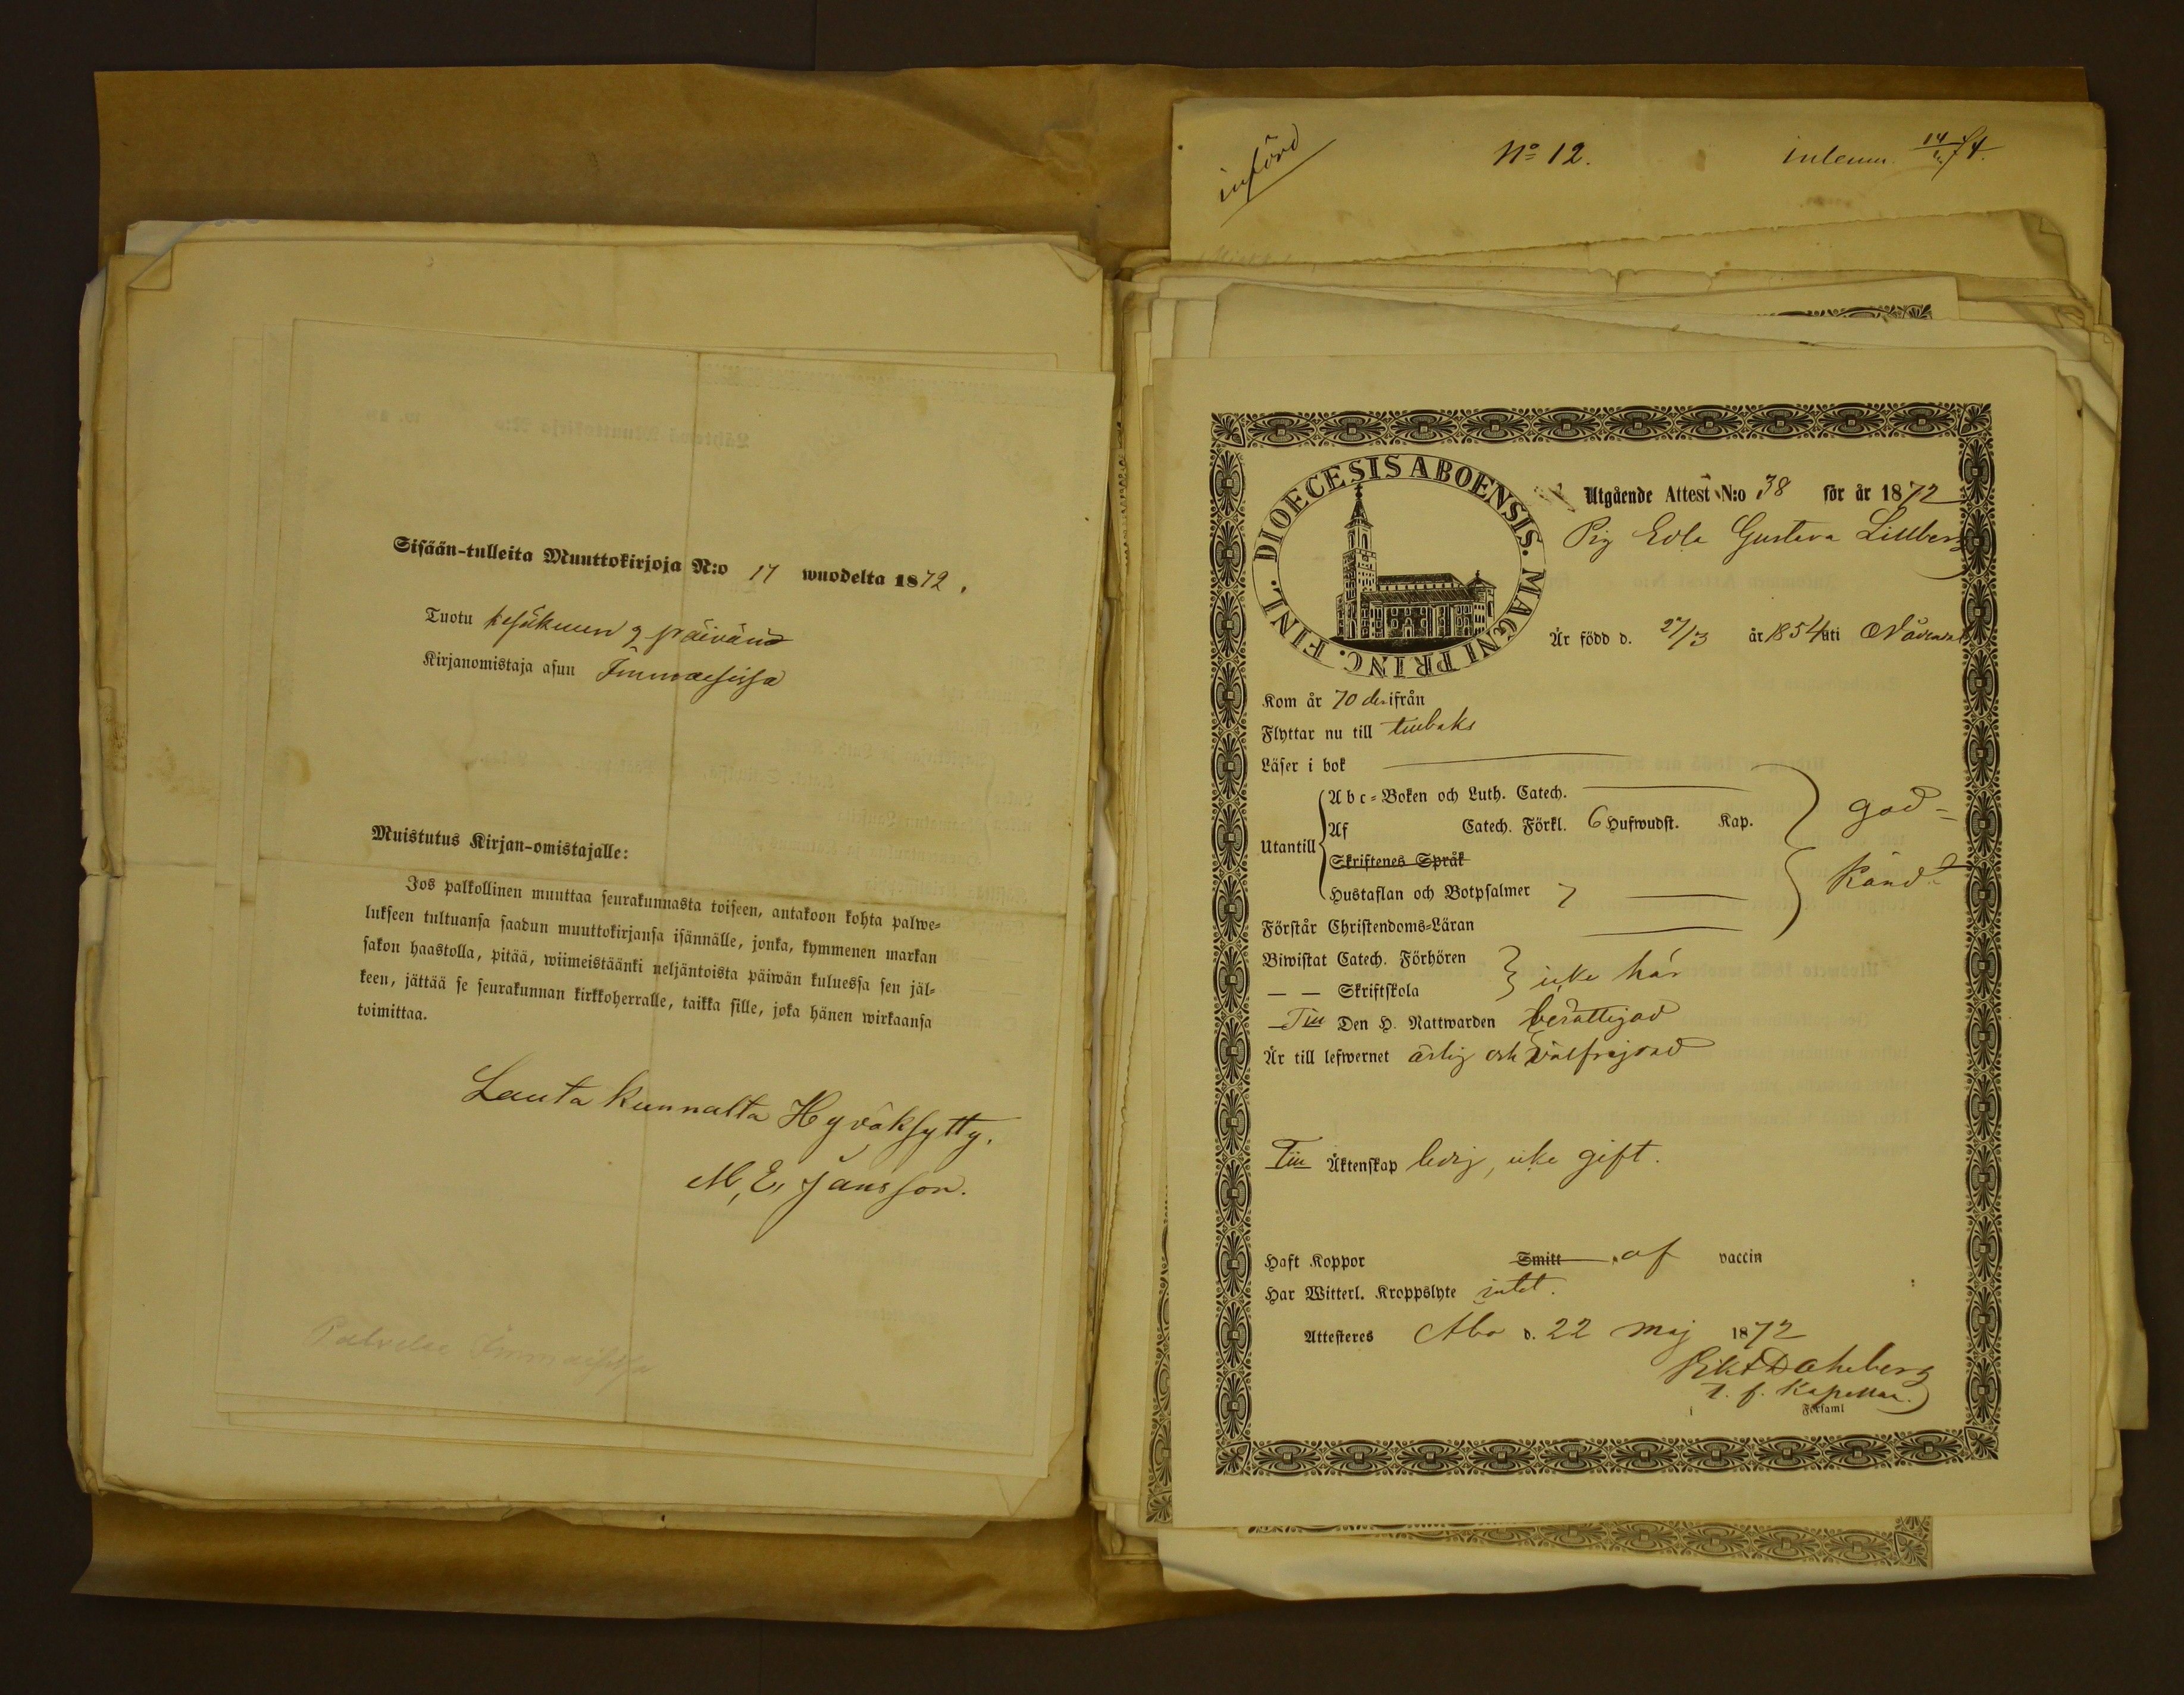 Sisään-tulleita Muuttokirjoja N:o 17 wuodelta 1872.
Tuotu kesäkuun 9 päivänä
Kirjanomistaja asuu Immaisissa
Muistutus Kirjan-omistajalle:
Jos palkollinen muuttaa seurakunnasta toiseen, antakoon kohta palwe-
lukseen tultuansa saadun muuttokirjansa isännälle, jonka, kymmenen markan
sakon haastolla, pitää, wiimeistäänki neljäntoista päiwän kuluessa sen jäl-
keen, jättää se seurakunnan kirkkoherralle, taikka sille, joka hänen wirkaansa
toimittaa.
Lautakunnalta Hyväksytty.
M. E. Jansson.
Palvelee Immaisissa
införd
No 12.
inlemn. 14/ 74.
DIOECESIS ABOENSIS. MAGNI PRINC. FINL.
Utgående Attest N:o 38 för år 1872
Pig Edla Gustava Lillberg
Är född d. 27/3 år 1854 uti Nådendal
Kom år 70 derifrån
Flyttar nu till tillbaks
Läser i bok
Abc-Boken och Luth. Catech.
god-
Utantill
Af Catech. Förkl. 6 Hufwudst. Kap.
Skriftenes Språk
känd
Hustaflan och Botpsalmer 7
Förstår Christendoms-Läran
Biwistat Catech. Förhören
— — Skriftskola
icke här
Till Den H. Nattwarden berättigad
Är till lefwernet ärlig och välfrejdad
Till Äktenskap ledig, icke gift.
Haft Koppor Smitt af vaccin
Har Witterl. Kroppslyte intet.
Attesteres Åbo d. 22 Maj 1872
Dahlberg
t. f. Kapellan.
i Församl